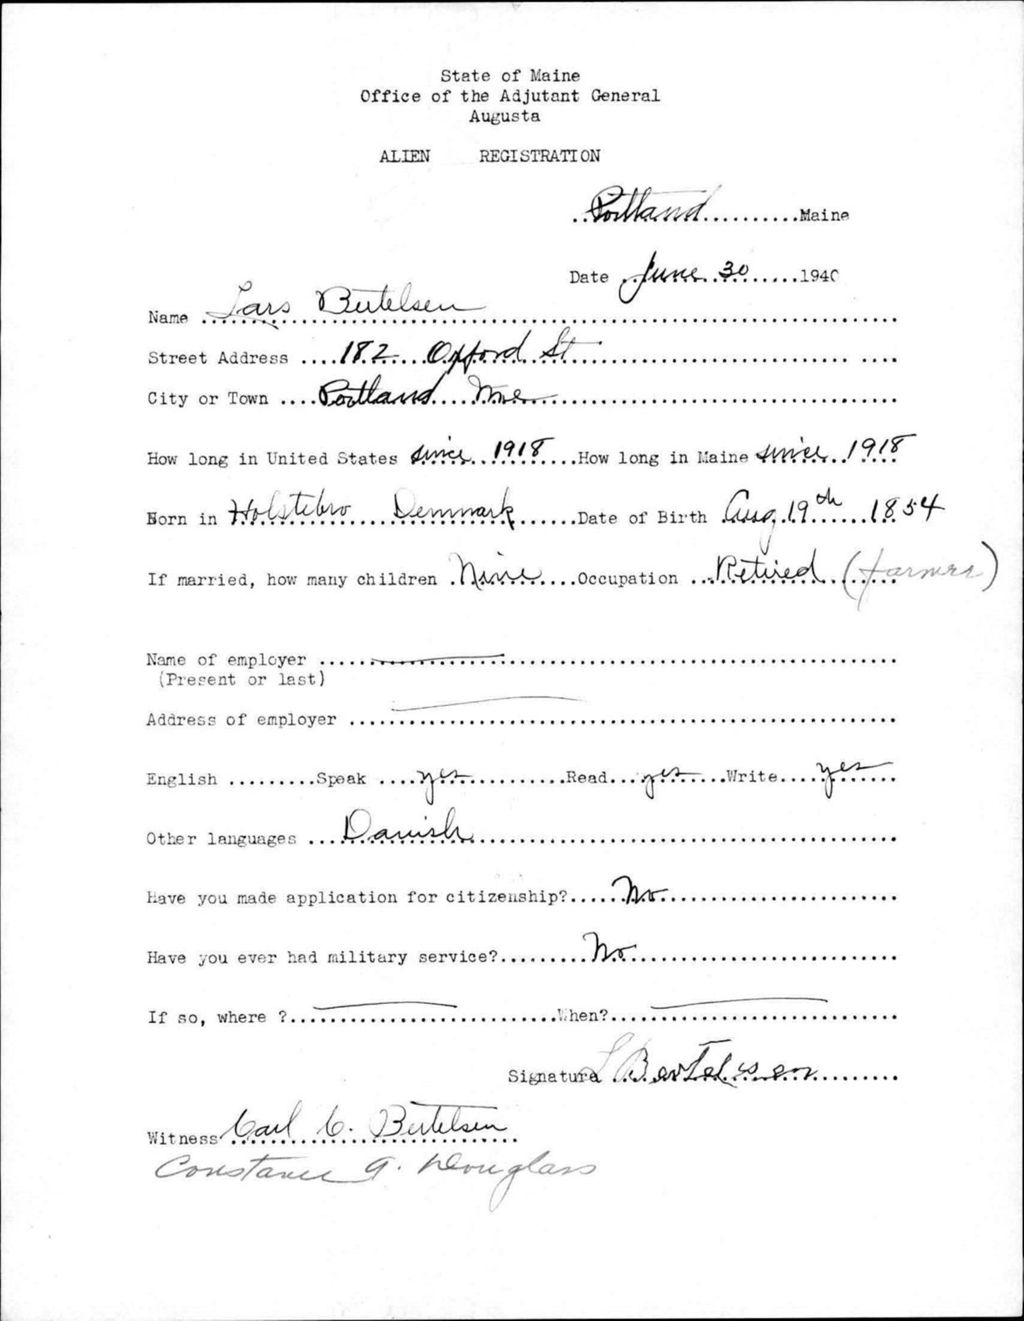 State of Maine
Office of the Adjutant General
Augusta
ALIEN REGISTRATION
..Portland..........Maine
Date ..June 30.......1940
Name Lars Bertelsen
Street Address ....182 Oxford St
City or Town ....Portland Me
How long in United States since 1918....How long in Maine since 1918
Born in Holstebro Denmark......Date of Birth Aug 19th 1854
If married, how many children .Nine....Occupation ..Retired (farmer)
Name of employer
(Present or last)
Address of employer
English .........Speak ....yes..........Read...yes....Write....yes
Other languages ...Danish
Have you made application for citizenship?.....No
Have you ever had military service?.........No
If so, where ?...........................When?
Signature L Bertelsen
Witness Carl C. Bertelsen
Constance G. Douglass